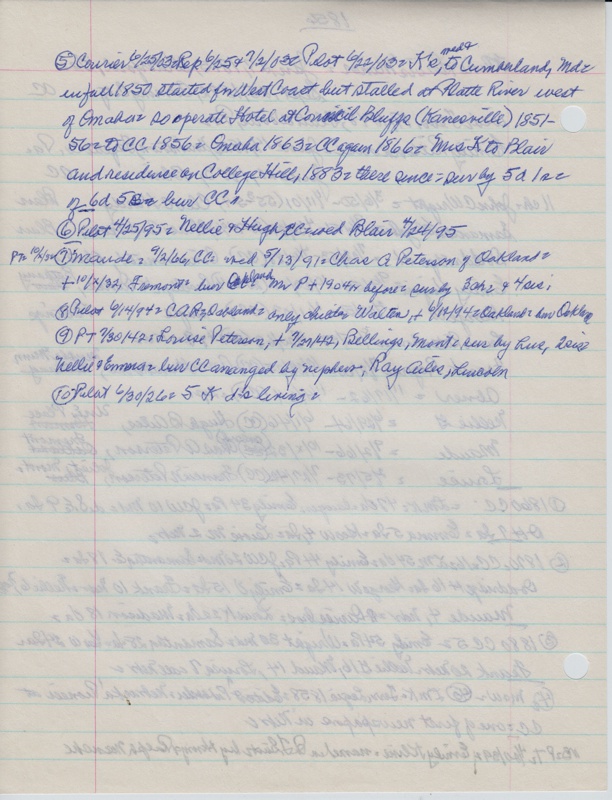 ⑤ Courier 6/25/03 Rep 6/25 & 7/2/03 & Pilot 6/22/03 = K's, med & to Cumberland, Md =
in fall 1850 started for West Coast but stalled at Platte River west
of Omaha = so operate Hotel at Council Bluffs (Kanesville) 1851-
56 = to CC 1856 = Omaha 1863 = CC again 1866 = Mrs K to Blair
and residence on College Hill, 1883 = there since = sur by 5d 1s =
of 6d 5s = bur CC
⑥ Pilot 4/25/95 = Nellie & Hugh, CC wed Blair 4/24/95
⑦ Maude = 9/2/66, CC = wed 5/13/91 = Chas A Peterson of Oakland =
+ 10/4/32, Fremont = bur Oakland Mr P + 1904 before = sur by 3 ch = & 4 sis;
⑧ Pilot 6/14/94 = CAP, Oakland = only child Walter, + 6/12/94 = Oakland = bur Oakland
⑨ PT 7/30/42 = Louise Peterson, + 7/27/42, Billings, Mont = sur by Luc, 2 sis =
Nellie & Emma = bur CC arranged by nephew, Ray Aites, Lincoln
⑩ Pilot 6/30/26 = 5 K d's living =